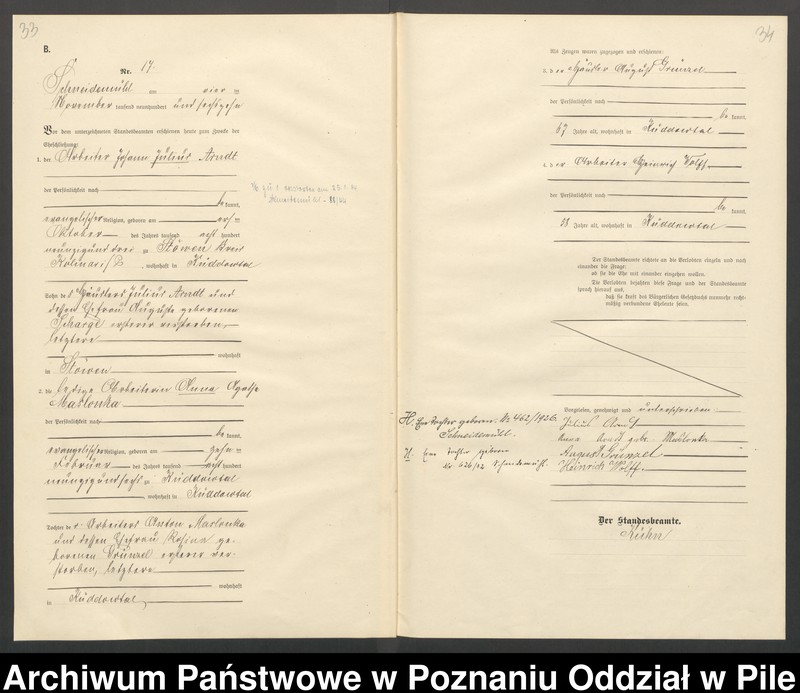 33
B.
Nr. 17.
Schneidemühl am vier ten
November tausend neunhundert und sechzehn
Vor dem unterzeichneten Standesbeamten erschienen heute zum Zwecke der
Eheschließung:
1. der Arbeiter Johann Julius Arndt
der Persönlichkeit nach
be kannt,
evangelischer Religion, geboren am
Oktober des Jahres tausend acht hundert
neunzig und drei zu Stöwen Kreis
Kolmar i/P, wohnhaft in Küddowtal
Sohn des Häuslers Julius Arndt und
dessen Ehefrau Auguste geborenen
ersterer verstorben,
letztere
wohnhaft
in Stöwen
2. die ledige Arbeiterin Anna Agathe
Maslonka
der Persönlichkeit nach
be kannt,
evangelischer Religion, geboren am zehn ten
Februar des Jahres tausend acht hundert
neunzig und sechs zu Küddowtal
, wohnhaft in Küddowtal
Tochter des Arbeiters Anton Maslonka
und dessen Ehefrau Rosine ge-
borenen Grünzel ersterer ver-
storben, letztere
wohnhaft
in Küddowtal
34
Als Zeugen waren zugezogen und erschienen:
3. der Häusler August Grünzel
der Persönlichkeit nach
be kannt,
67 Jahre alt, wohnhaft in Küddowtal
4. der Arbeiter Heinrich Wolff
der Persönlichkeit nach
be kannt,
Jahre alt, wohnhaft in Küddowtal
Der Standesbeamte richtete an die Verlobten einzeln und nach
einander die Frage:
ob sie die Ehe mit einander eingehen wollen.
Die Verlobten bejahten diese Frage und der Standesbeamte
sprach hierauf aus,
daß sie kraft des Bürgerlichen Gesetzbuchs nunmehr recht-
mäßig verbundene Eheleute seien.
Vorgelesen, genehmigt und unterschrieben
H. Eine Tochter geboren. Nr. 462/1926.
Schneidemühl.
Julius Arndt
Anna Arndt geb. Maslonka
H. Eine Tochter geboren
Schneidemühl.
August Grünzel
Heinrich Wolff
Der Standesbeamte.
Kühn
Archiwum Państwowe w Poznaniu Oddział w Pile